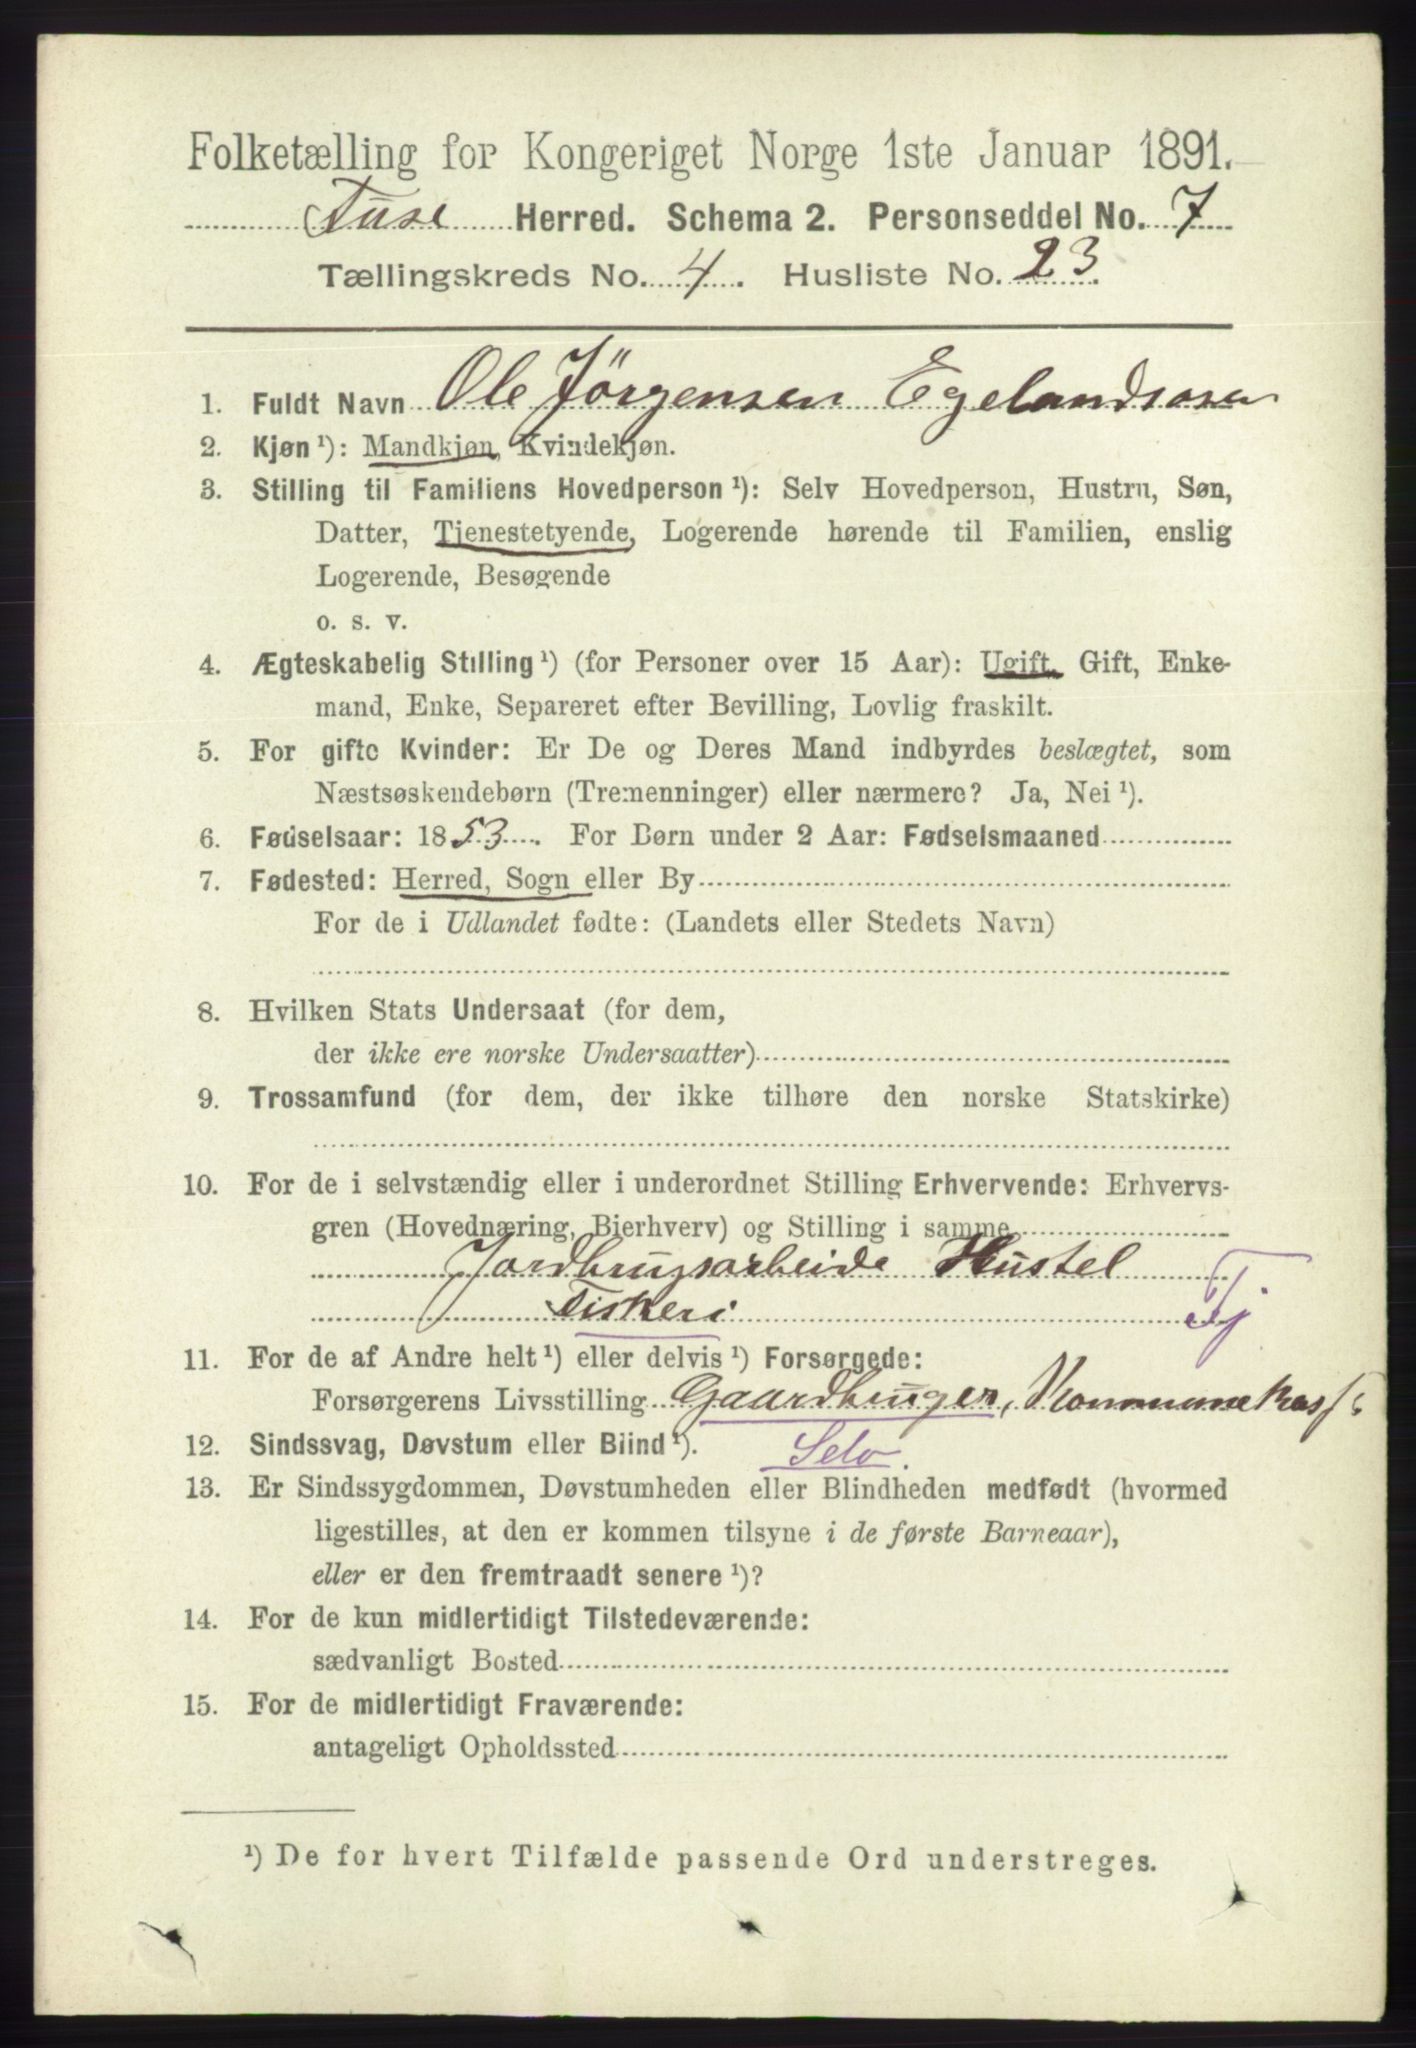 Folketælling for Kongeriget Norge 1ste Januar 1891.
Fuse Herred. Schema 2. Personseddel No. 7
Tællingskreds No. 4. Husliste No. 23.
1. Fuldt Navn Ole Jörgensen Egelandsosen
2. Kjøn ¹): Mandkjøn, Kvindekjøn.
3. Stilling til Familiens Hovedperson ¹): Selv Hovedperson, Hustru, Søn,
Datter, Tjenestetyende, Logerende hørende til Familien, enslig
Logerende, Besøgende
o. s. v.
4. Ægteskabelig Stilling ¹) (for Personer over 15 Aar): Ugift, Gift, Enke-
mand, Enke, Separeret efter Bevilling, Lovlig fraskilt.
5. For gifte Kvinder: Er De og Deres Mand indbyrdes beslægtet, som
Næstsøskendebørn (Tremenninger) eller nærmere? Ja, Nei ¹).
6. Fødselsaar: 1853. For Børn under 2 Aar: Fødselsmaaned
7. Fødested: Herred, Sogn eller By
For de i Udlandet fødte: (Landets eller Stedets Navn)
8. Hvilken Stats Undersaat (for dem,
der ikke ere norske Undersaatter)
9. Trossamfund (for dem, der ikke tilhøre den norske Statskirke)
10. For de i selvstændig eller i underordnet Stilling Erhvervende: Erhvervs-
gren (Hovednæring, Bierhverv) og Stilling i samme
Jordbrugsarbeide Hustel
Fiskeri Tj
11. For de af Andre helt ¹) eller delvis ¹) Forsørgede:
Forsørgerens Livsstilling Gaardbruger, Kommunekass
12. Sindssvag, Døvstum eller Blind ¹). Selv.
13. Er Sindssygdommen, Døvstumheden eller Blindheden medfødt (hvormed
ligestilles, at den er kommen tilsyne i de første Barneaar),
eller er den fremtraadt senere ¹)?
14. For de kun midlertidigt Tilstedeværende:
sædvanligt Bosted
15. For de midlertidigt Fraværende:
antageligt Opholdssted
¹) De for hvert Tilfælde passende Ord understreges.